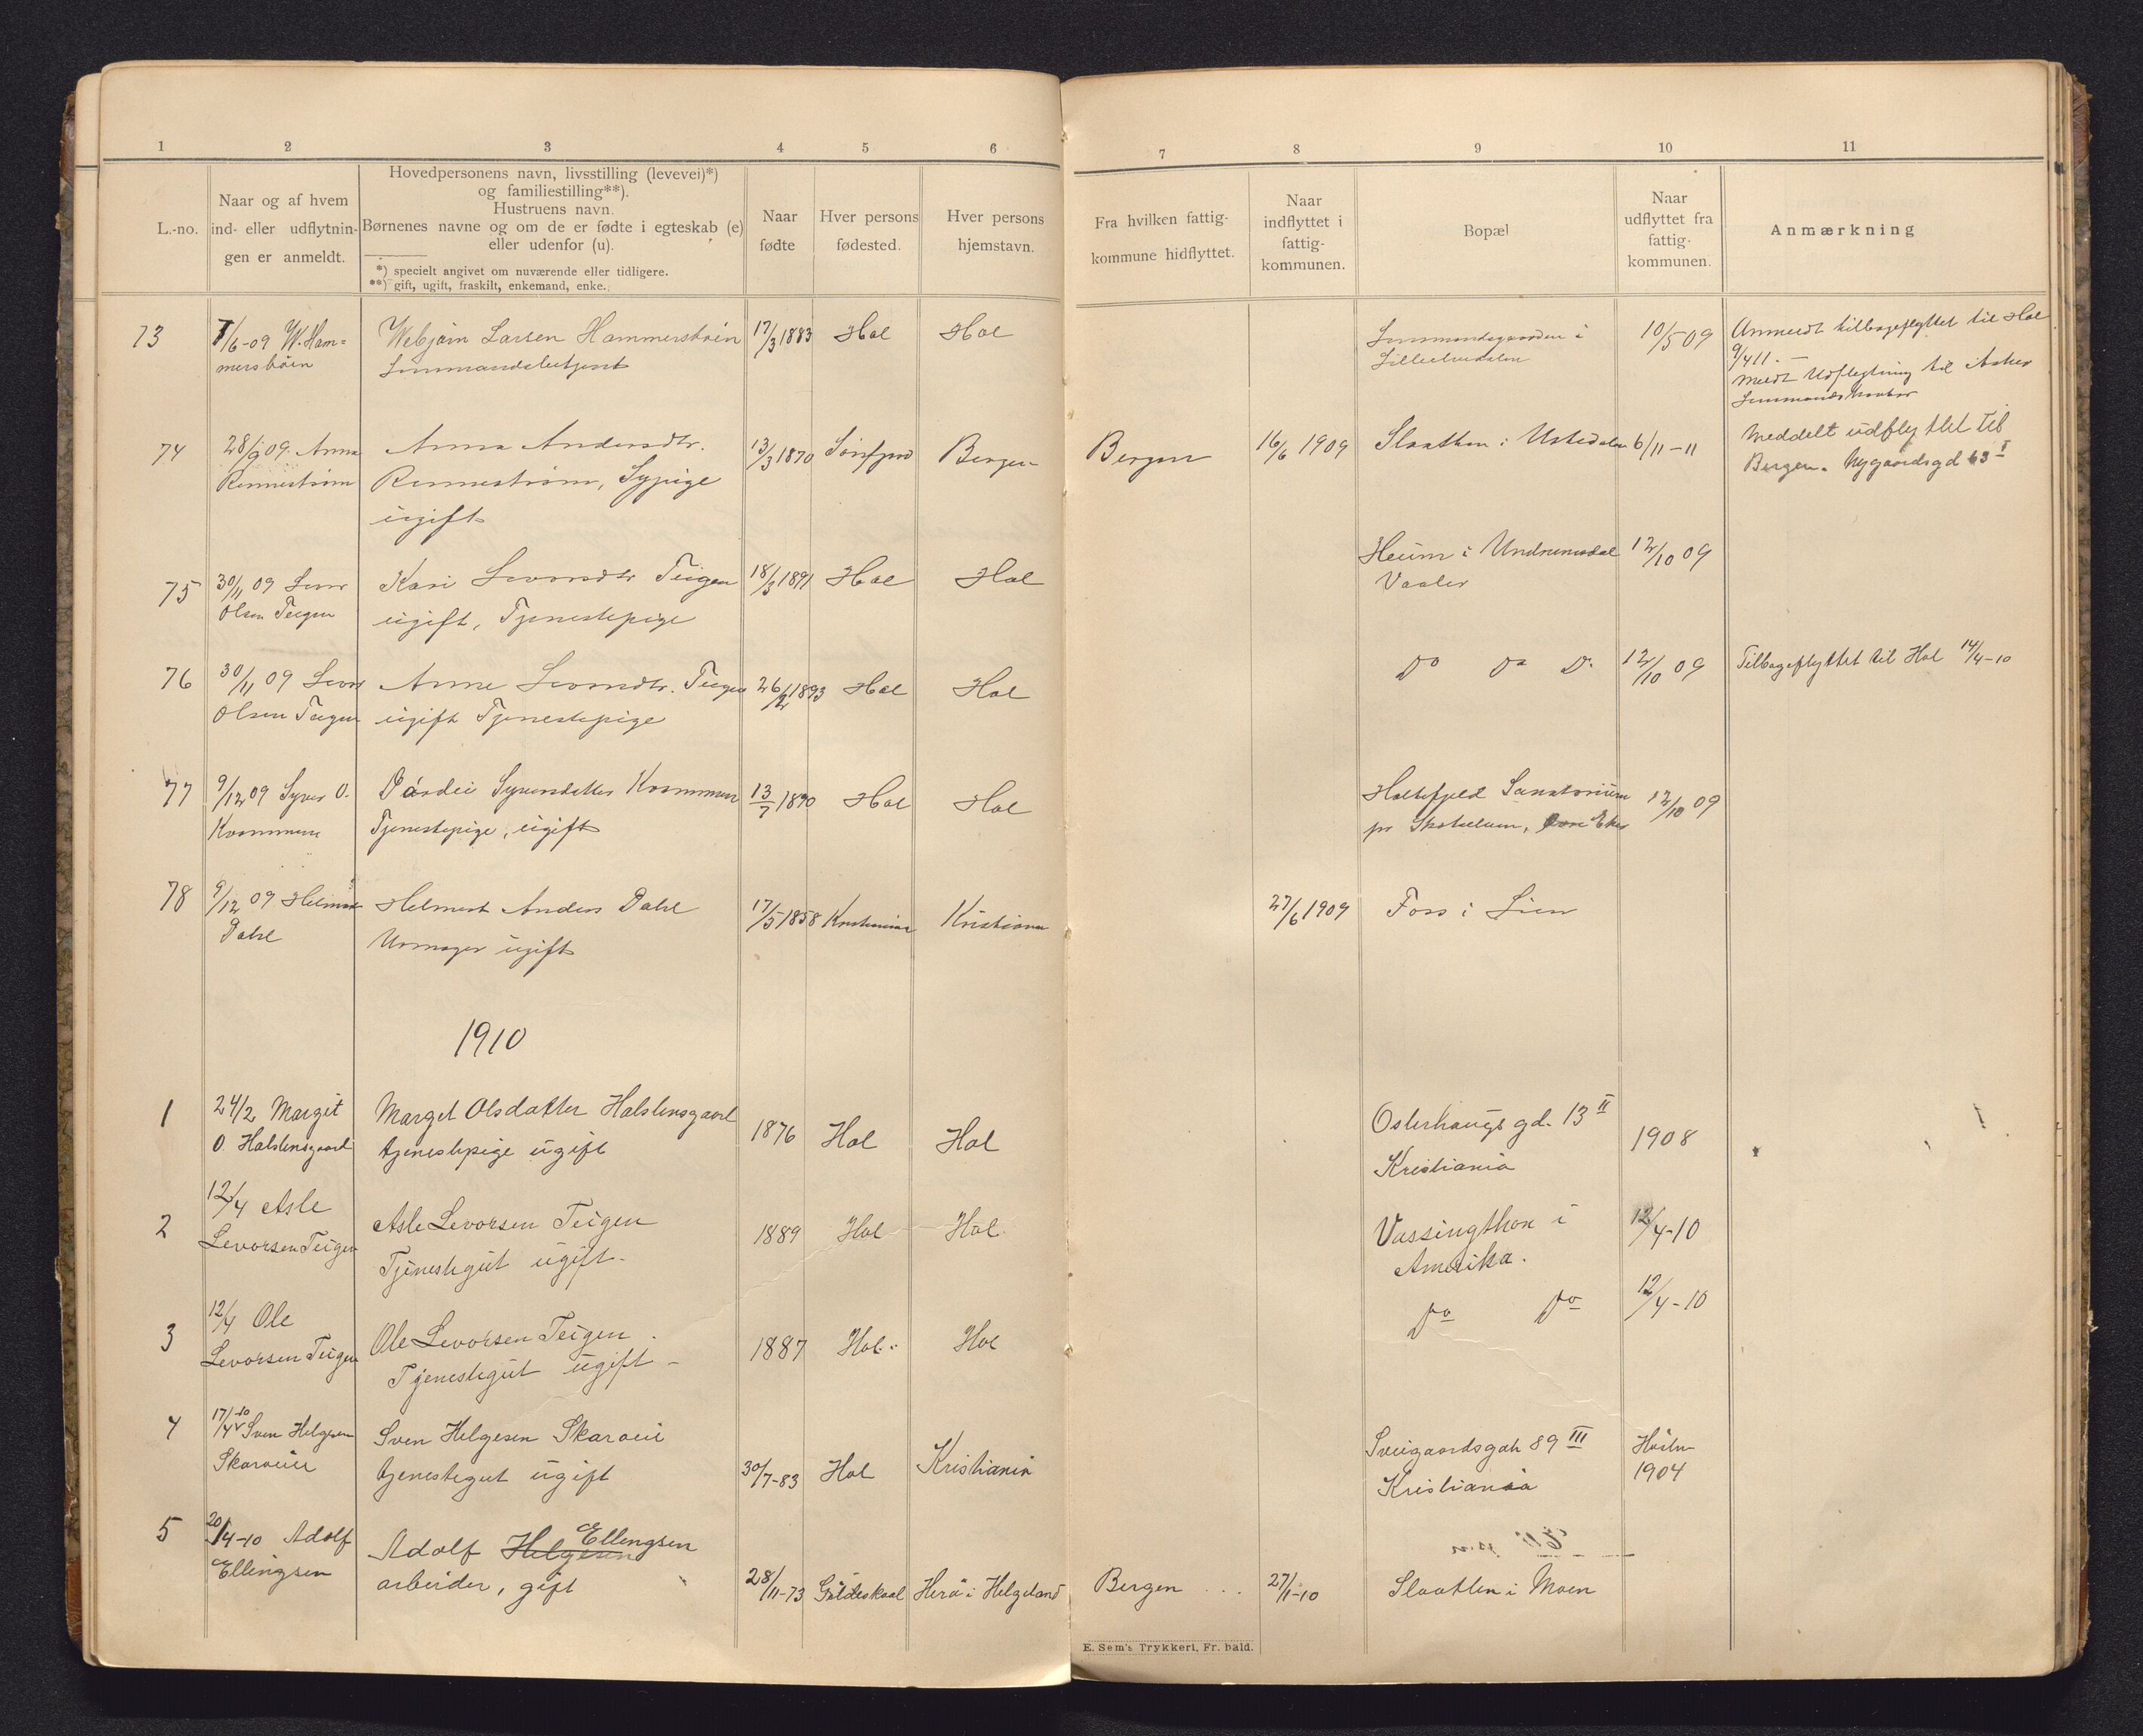 1 2 3 4 5 6 7 8 9 10 11
L.-no.
Naar og af hvem
ind- eller udflytnin-
gen er anmeldt.
Hovedpersonens navn, livsstilling (levevei)*)
og familiestilling**).
Hustruens navn.
Børnenes navne og om de er fødte i egteskab (e)
eller udenfor (u).
*) specielt angivet om nuværende eller tidligere.
**) gift, ugift, fraskilt, enkemand, enke.
Naar
fødte
Hver persons
fødested.
Hver persons
hjemstavn.
Fra hvilken fattig-
kommune hidflyttet.
Naar
indflyttet i
fattig-
kommunen.
Bopæl
Naar
udflyttet fra
fattig-
kommunen.
Anmærkning
73
7/6-09 W. Ham=
mersbøen
Webjørn Larsen Hammersbøen
Lensmandsbetjent
17/3 1883
Hol
Hol
Lensmandsgaarden i
Lilleelvedalen
10/5 09
Anmeldt tilbageflyttet til Hol
9/4 11. —
Meldt Udflytning til Asker
Lensmandskontor
74
28/9 09. Anna
Rennestrøm
Anna Andersdtr.
Rennestrøm, Sypige
ugift
13/3 1870
Bergen
Bergen
16/6 1909
Slaatten i Ustedalen
6/11-11
Meddelt udflyttet til
Bergen. Nygaardsgd 63 I
75
30/11 09 Levor
Olsen Teigen
Kari Levorsdtr Teigen
ugift, Tjenestepige
18/3 1891
Hol
Hol
Heum i Undrumsdal
Vaaler
12/10 09
76
30/11 09 Levor
Olsen Teigen
Anne Levorsdtr. Teigen
ugift Tjenestepige
26/2 1893
Hol
Hol
Do Do Do
12/10 09
Tilbageflyttet til Hol 14/4-10
77
9/12 09 Syver O.
Kvammen
Syversdatter Kvammen
Tjenestepige, ugift
13/7 1890
Hol
Hol
Holtefjeld Sanatorium
pr Skotselven, Eker
12/10 09
78
9/12 09 Helmert
Dahl
Helmert Anders Dahl
Urmager ugift
17/5 1858
Kristiania
Kristiania
27/6 1909
Foss i Lien
1910
1
24/2 Margit
O. Halstensgaard
Marget Olsdatter Halstensgaard
tjenestepige ugift
1876
Hol
Hol
Osterhaugs gd. 13 II
Kristiania
1908
2
12/4 Asle
Levorsen Teigen
Asle Levorsen Teigen
Tjenestegut ugift-
1889
Hol
Hol
Vassingthon i
Amerika.
12/4-10
3
12/4 Ole
Levorsen Teigen
Ole Levorsen Teigen
Tjenestegut ugift -
1887
Hol
Hol
Do Do
12/4-10
4
17/4-10 Sven Helgesen
Skaroeie
Sven Helgesen Skaroeie
tjenestegut ugift
30/7-83
Hol
Kristiania
Sveigaardsgate 89 III
Kristiania
Høsten
1904
5
20/4-10 Adolf
Ellingsen
Adolf Helgesen Ellingsen
arbeider, gift
28/11-73
Gildeskaal
Herø i Helgeland
Bergen
27/1-10
Slaatten i Moen
E. Sem's Trykkeri, Fr. hald.